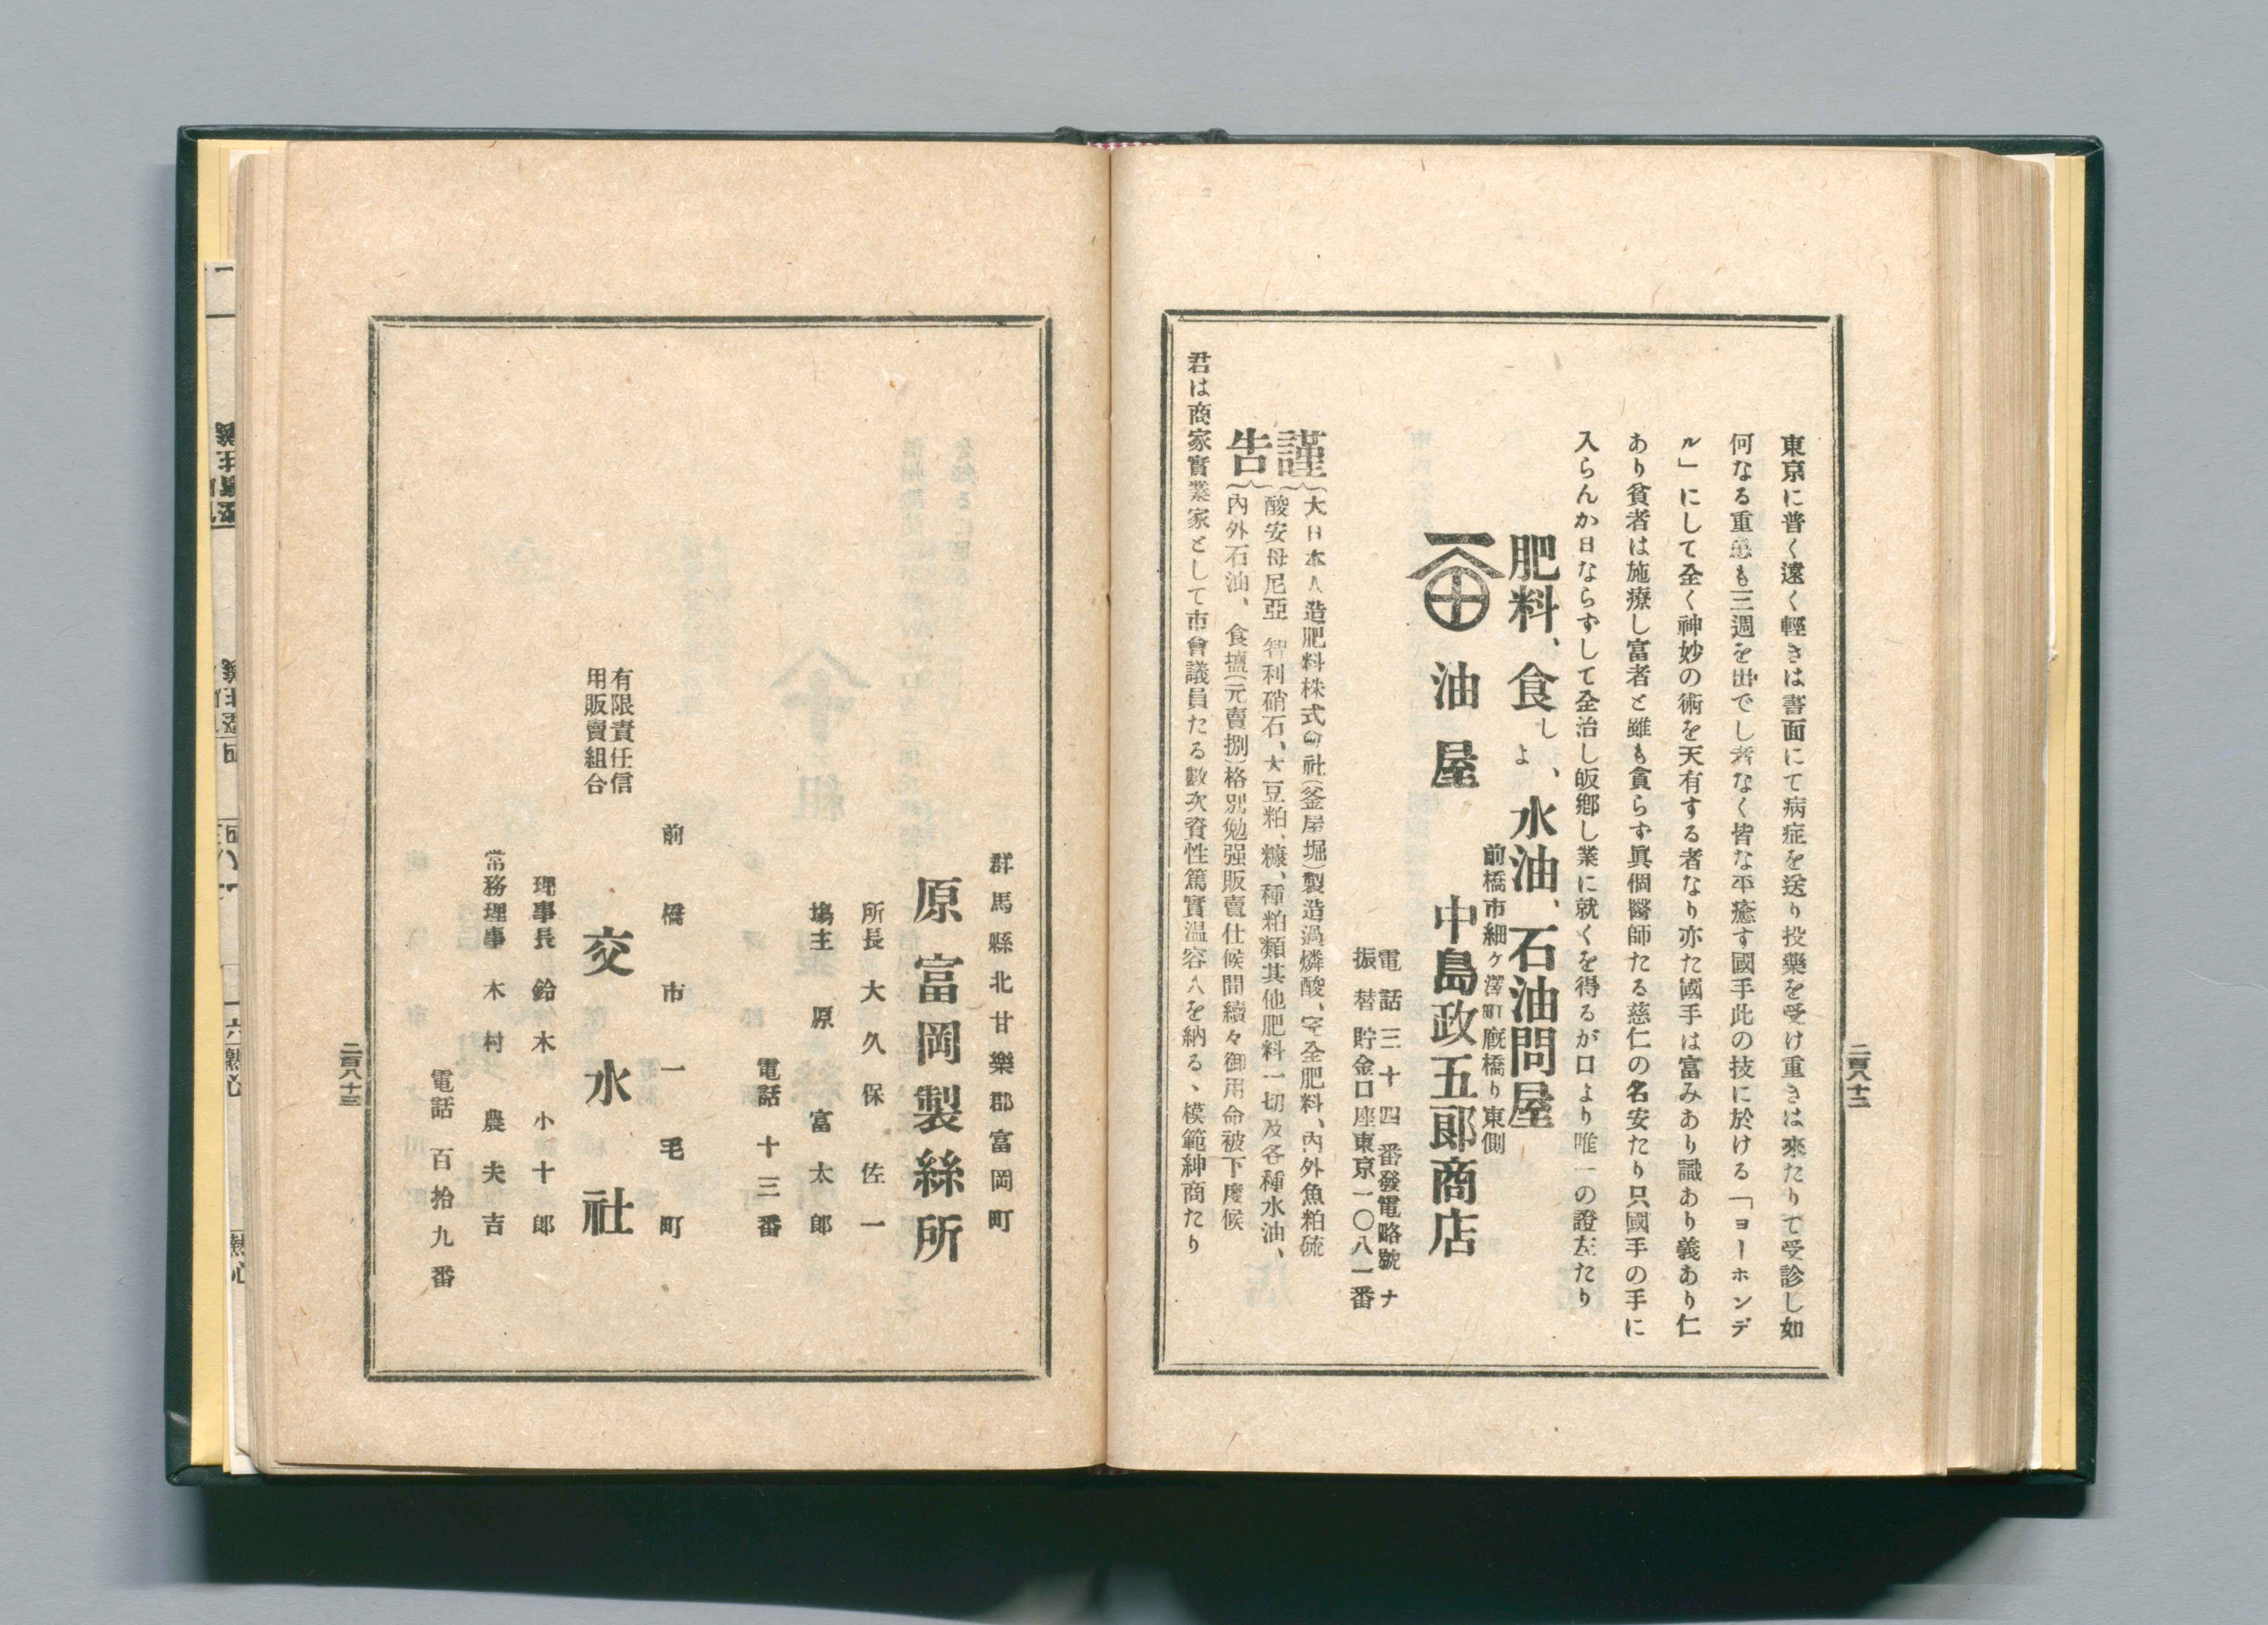 東京に普く遠く輕きは書面にて病症を送り投藥を受け重きは來たりて受診し如
何なる重患も三週を出でし者なく皆な平癒す國手此の技に於ける「ヨーホンデ
ル」にして全く神妙の術を天有する者なり亦た國手は富みあり識あり義あり仁
あり貧者は施療し富者と雖も貪らず眞個醫師たる慈仁の名安たり只國手の手に
入らんか日ならずして全治し皈鄕し業に就くを得るが口より唯一の證左たり
肥料、食し よ、水油、石油問屋
前橋市細ヶ澤町厩橋り東側
油屋 中島政五郞商店
電話三十四番發電略號ナ
振替貯金口座東京一〇八一番
謹告
大日本人造肥料株式會社(釜屋堀)製造過燐酸、完全肥料、內外魚粕硫
酸安母尼亞 智利硝石、大豆粕、糠、種粕類其他肥料一切及各種水油、
內外石油、食塩(元賣捌)格別勉强販賣仕候間續々御用命被下度候
君は商家實業家として市會議員たる數次資性篤實溫容人を納る、模範紳商たり
二百八十二
群馬縣北甘樂郡富岡町
原富岡製絲所
所長 大久保佐一
塲主 原富太郞
電話十三番
前橋市一毛町
有限責任信
用販賣組合
交水社
理事長 鈴木小十郞
常務理事 木村農夫吉
電話 百拾九番
二百八十三